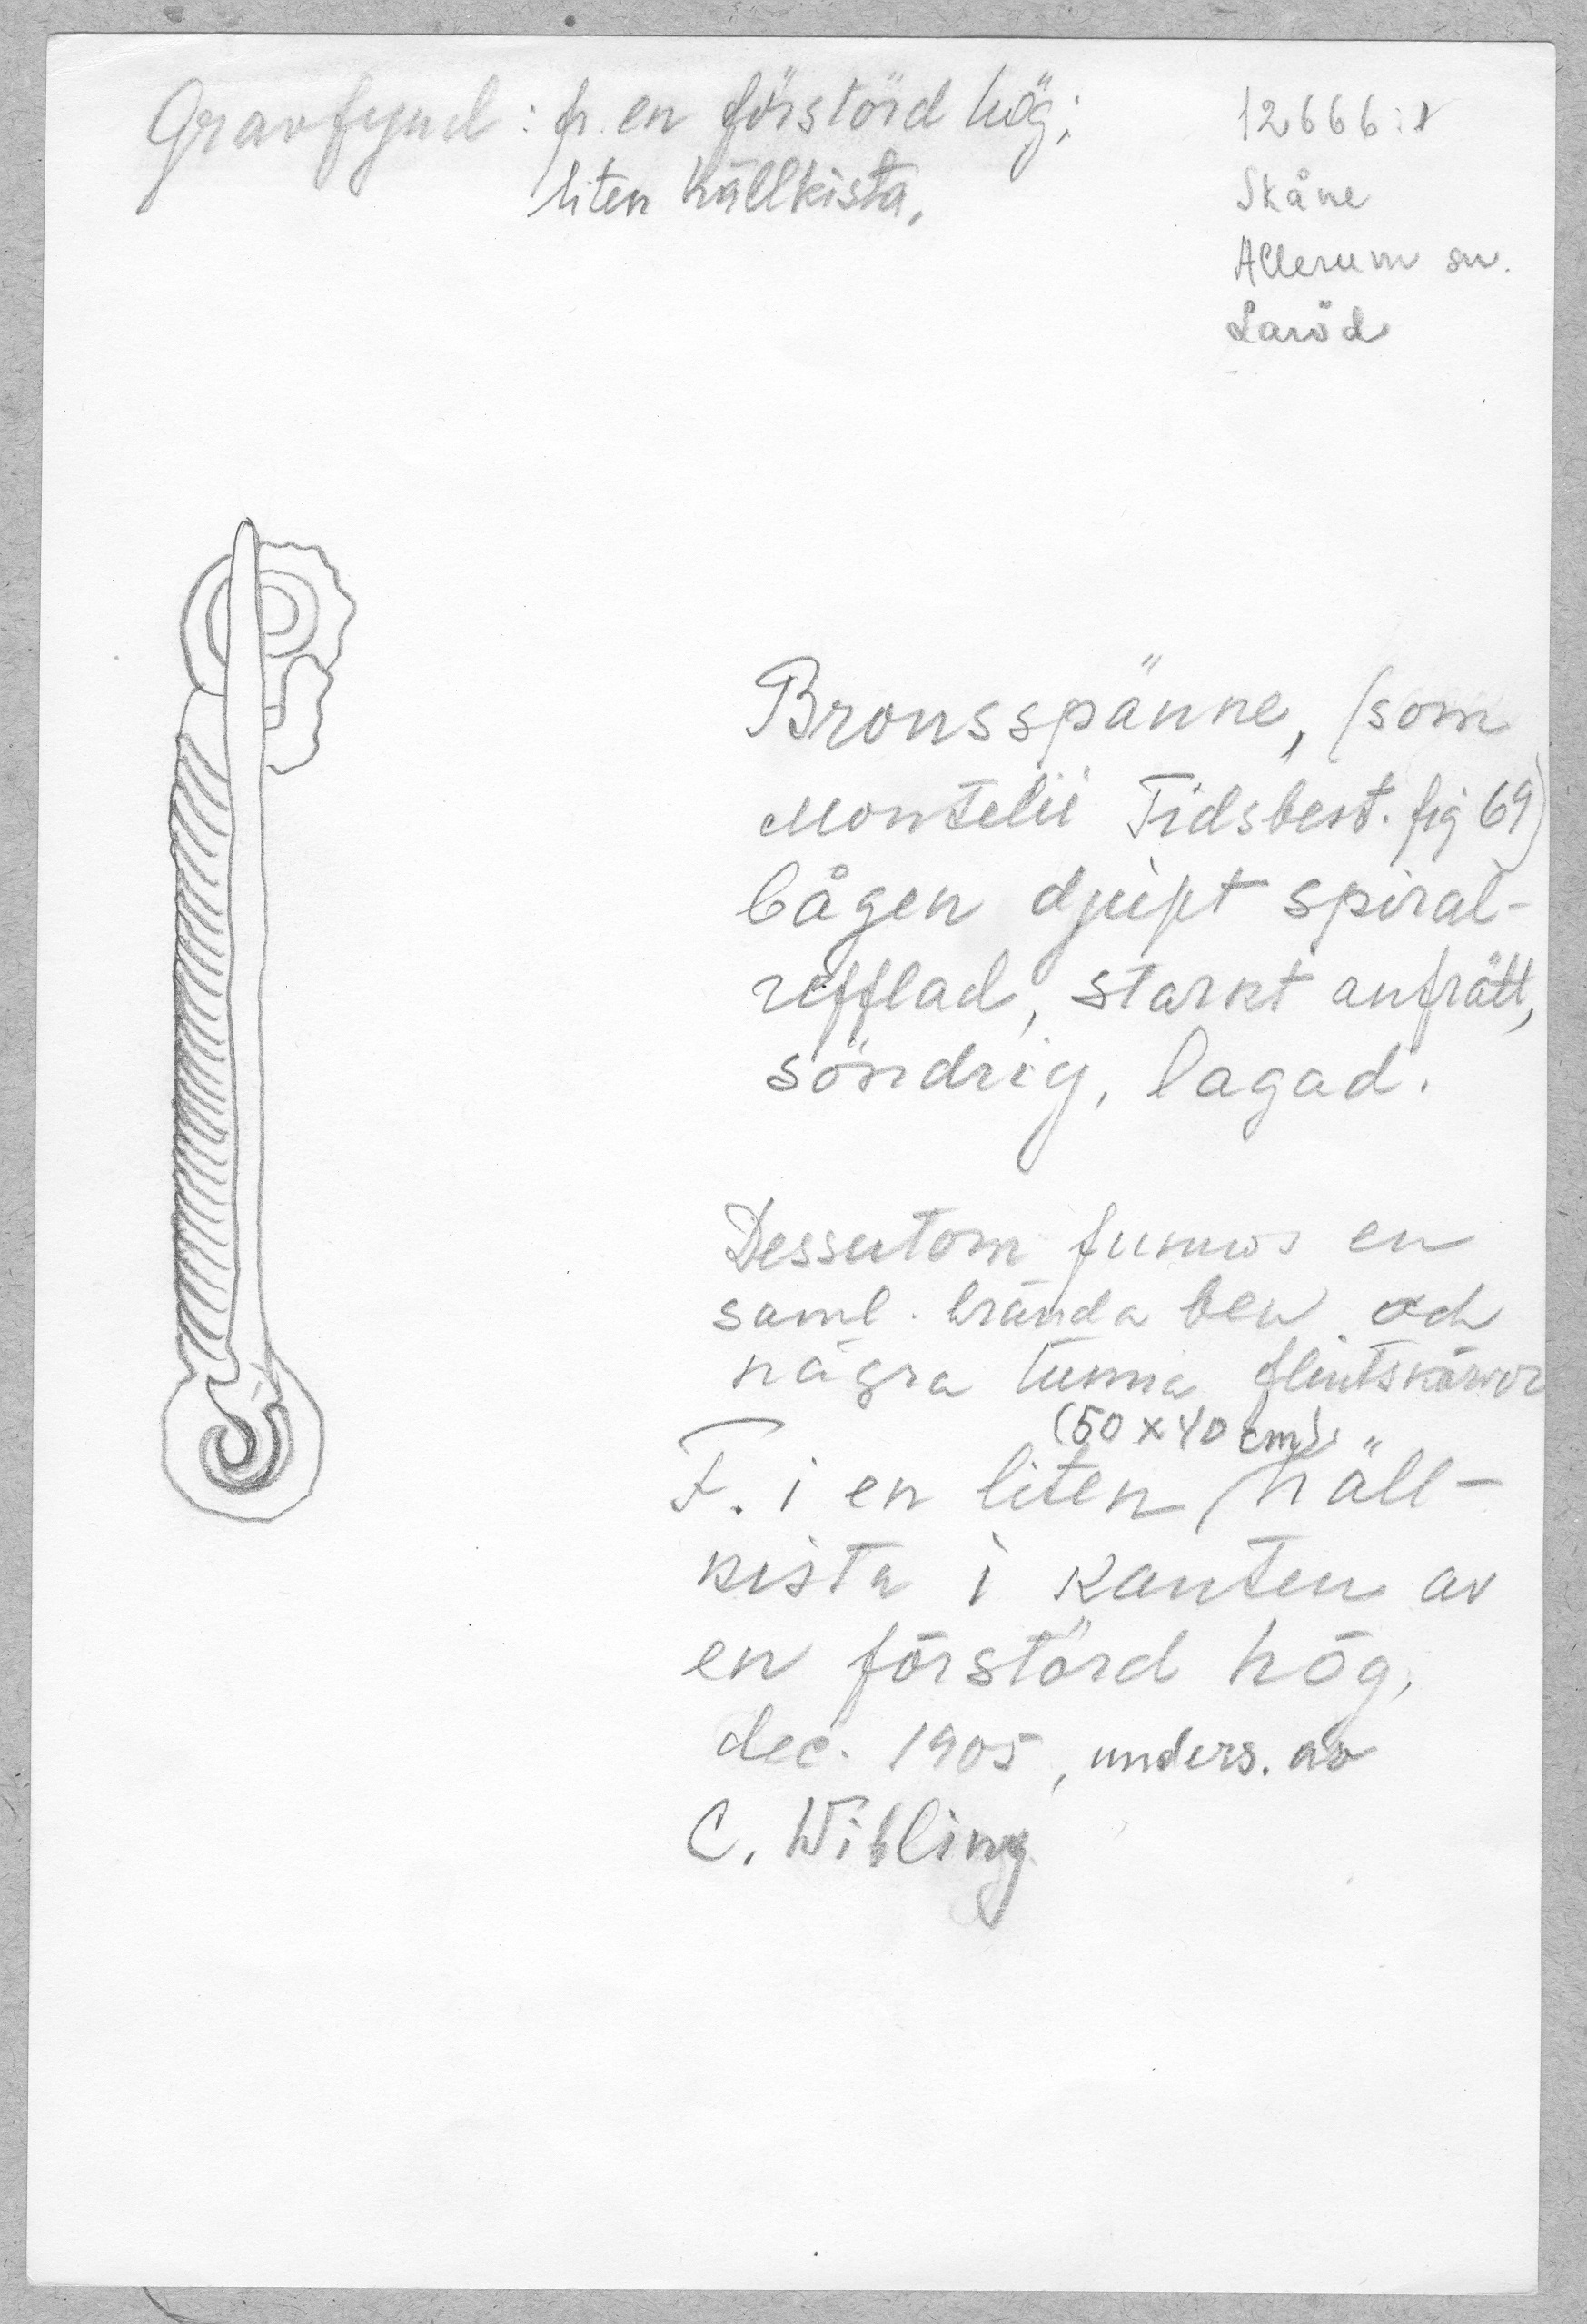 Gravfynd : fr. en förstörd hög;
liten hällkista,
12666:1
Skåne
Allerum sn.
Laröd
Bronsspänne, (som
Montelii Tidsbest. fig 69)
bågen djupt spiral-
refflad, starkt anfrätt,
söndrig, lagad.
Dessutom funnos en
saml. brända ben och
några tunna flintskärvor
(50 x 40 cm)
F. i en liten häll-
kista i kanten av
en förstörd hög,
dec. 1905, unders. av
C. Wibling